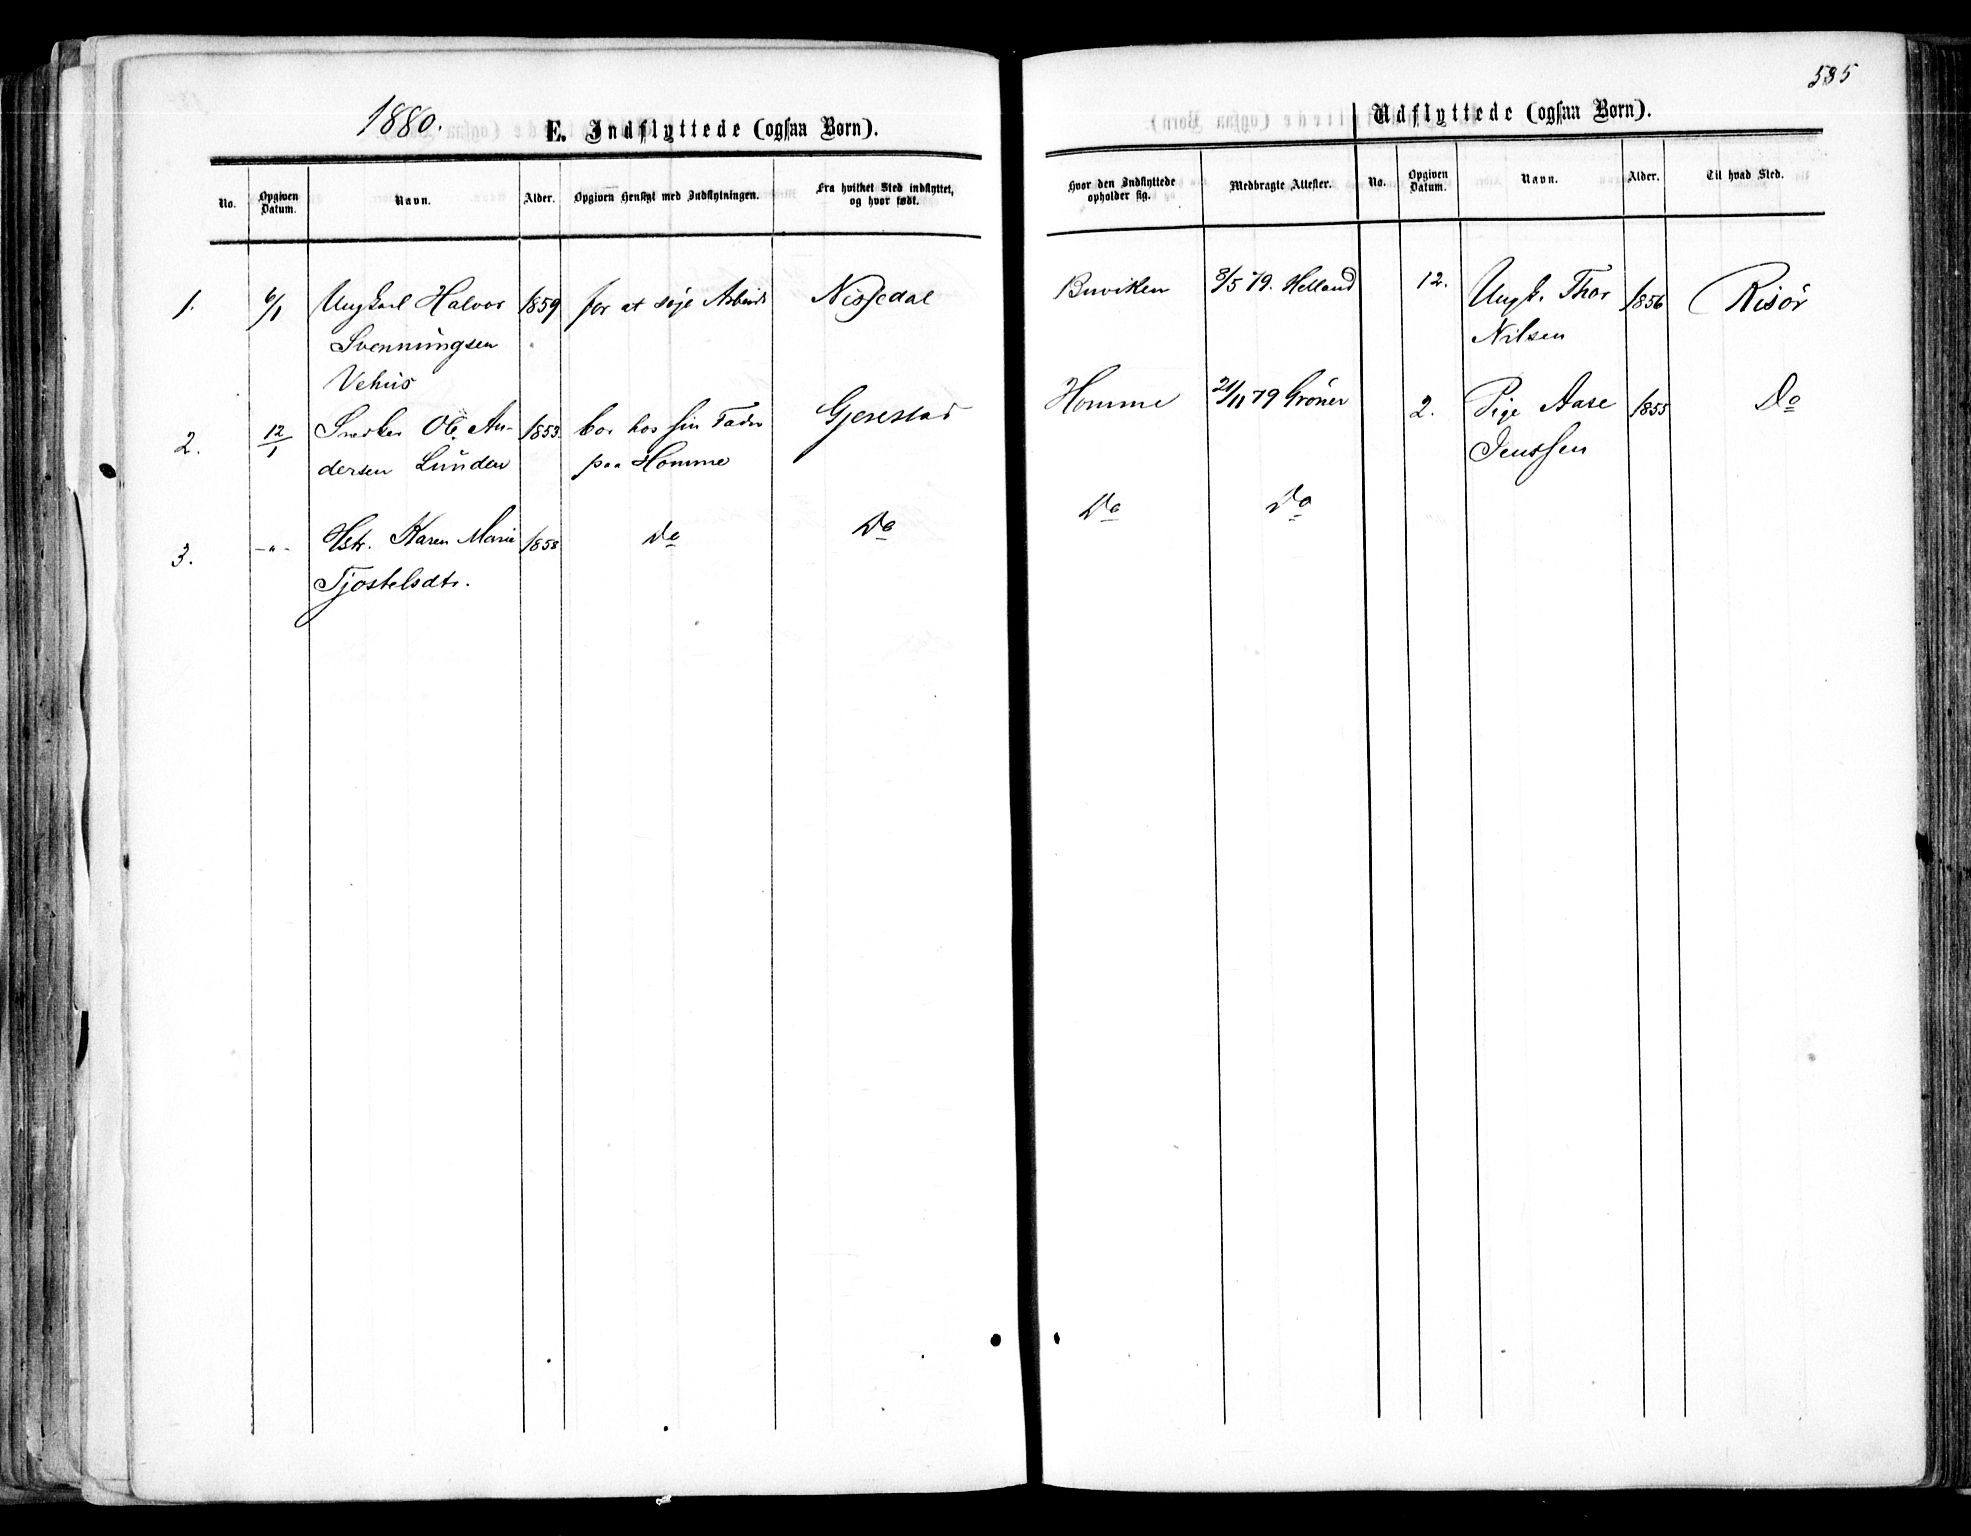 585
1880.
E. Indflyttede (ogsaa Børn).
No.
Opgiven Datum.
Navn.
Alder.
Opgiven Hensigt med Indflytningen.
Fra hvilket Sted indflyttet, og hvor født.
1. 6/1 Ungkarl Halvor 1859 for at søge Arbeide Nissedal
Svenningsen
Vehus
2. 12/1 Snedker Ole An- 1853. bor hos sin Fader Gjerestad
dersen Lunden paa Homme
3. -"- Hstr. Karen Marie 1858 Do Do
Tjostelsdtr.
Udflyttede (ogsaa Børn).
Hvor den Indflyttede opholder sig.
Medbragte Attester.
No.
Opgiven Datum.
Navn.
Alder.
Til hvad Sted.
Buviken 8/5 79. Helland 12. Ungk. Thor 1856 Risör
Nilsen
Homme 21/11 79 Gröner 2. Pige Aase 1855 Do
Jenssen
Do Do